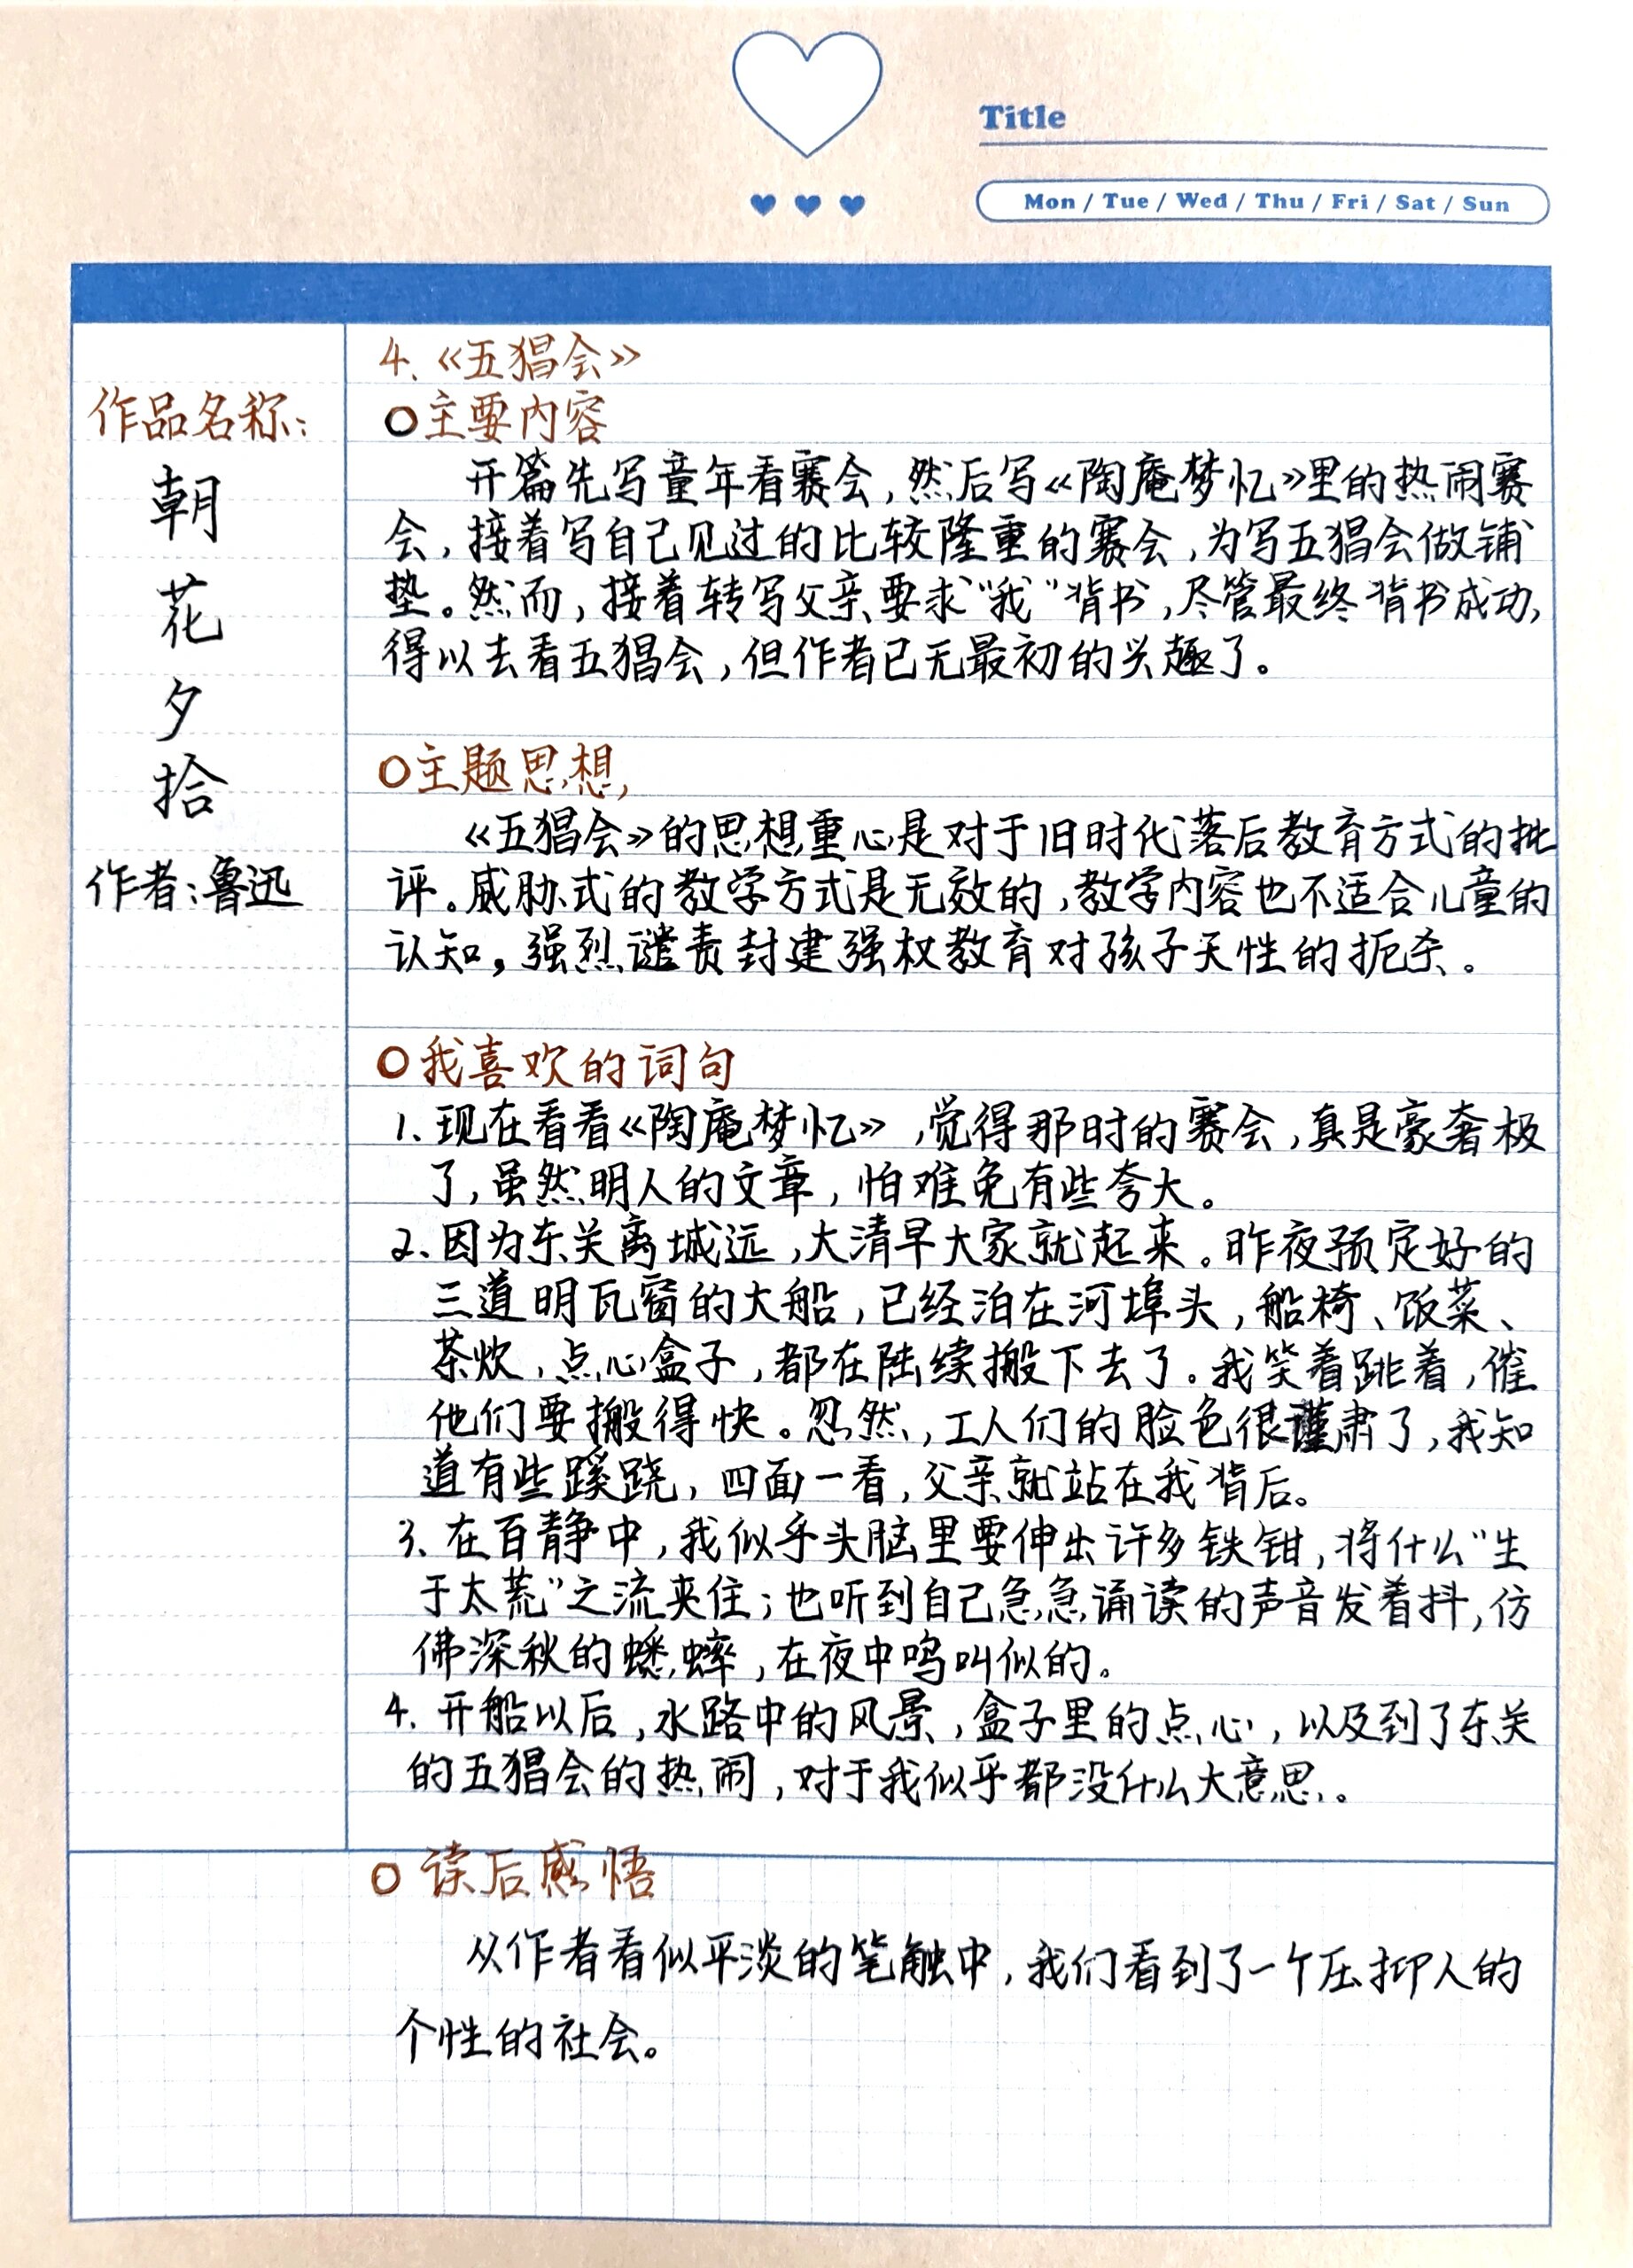 Title
Mon / Tue / Wed / Thu / Fri / Sat / Sun
作品名称:
朝
花
夕
拾
作者:鲁迅
4、《五猖会》
○主要内容
开篇先写童年看赛会,然后写《陶庵梦忆》里的热闹赛
会,接着写自己见过的比较隆重的赛会,为写五猖会做铺
垫。然而,接着转写父亲要求“我”背书,尽管最终背书成功,
得以去看五猖会,但作者已无最初的兴趣了。
○主题思想,
《五猖会》的思想重心是对于旧时代落后教育方式的批
评。威胁式的教学方式是无效的,教学内容也不适合儿童的
认知,强烈谴责封建强权教育对孩子天性的扼杀。
○我喜欢的词句
1、现在看看《陶庵梦忆》,觉得那时的赛会,真是豪奢极
了,虽然明人的文章,怕难免有些夸大。
2、因为东关离城远,大清早大家就起来。昨夜预定好的
三道明瓦窗的大船,已经泊在河埠头,船椅、饭菜、
茶炊,点心盒子,都在陆续搬下去了。我笑着跳着,催
他们要搬得快。忽然,工人们的脸色很谨肃了,我知
道有些蹊跷,四面一看,父亲就站在我背后。
3、在百静中,我似乎头脑里要伸出许多铁钳,将什么“生
于太荒”之流夹住;也听到自己急急诵读的声音发着抖,仿
佛深秋的蟋蟀,在夜中鸣叫似的。
4、开船以后,水路中的风景,盒子里的点心,以及到了东关
的五猖会的热闹,对于我似乎都没什么大意思。
○读后感悟
从作者看似平淡的笔触中,我们看到了一个压抑人的
个性的社会。